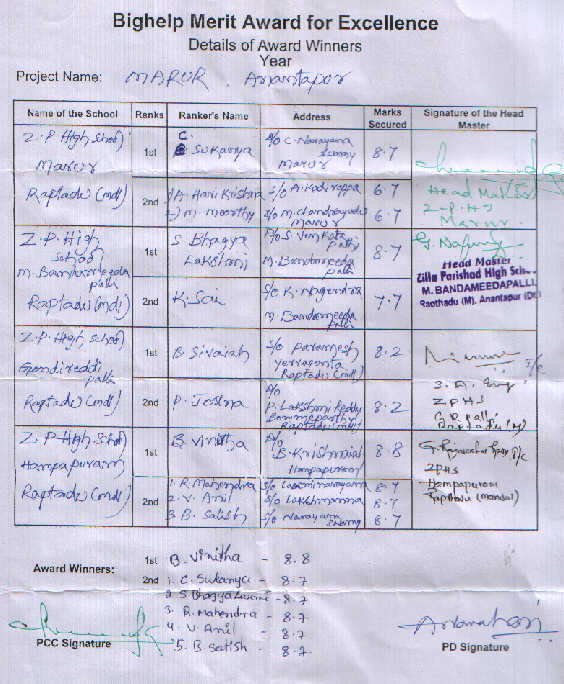 Bighelp Merit Award for Excellence
Details of Award Winners
Year
Project Name: MARUR, Anantapur
Name of the School Ranks Ranker's Name Address Marks Secured Signature of the Head Master
Z.P High School Marur Raptadu (mdl)
1st C. Sukanya D/o C. Narayana Swamy Marur 8.7
2nd 1) A. Hari Krishna S/o A. Kadirappa 6.7
2) M. Moorthy S/o M. Chandrayudu Maruru 6.7
Head Master
Z-P.H.S
Marur.
Z.P. High School M. Bandameeda palli Raptadu (mdl)
1st S. Bhagya Lakshmi D/o S. Venkata M. Bandameeda palli 8.7
2nd K. Sai S/o K. Nagendra M. Bandameeda palli 7.7
Head Master
Zilla Parishad High School
M. BANDAMEEDAPALLI,
Rapthadu (M), Anantapur (Dt)
Z.P. High School Gondireddi palli Raptadu (mdl)
1st B. Sivaiah S/o Paramesh Raptadu (mdl) 8.2
2nd P. Jostna D/o P. Lakshmi Reddy Raptadu (mdl) 8.2
I/c
ZPHS
G.R. palli
Raptadu (M)
Z.P High School Hampapuram Raptadu (mdl)
1st B. Vinitha D/o B. Krishnaiah Hampapuram 8.8
2nd 1. R. Mahendra S/o Laxminarayana 8.7
2. V. Anil S/o Lakshmanna 8.7
3. B. Satish S/o Narayana Swamy 8.7
ZPHS
Hampapuram
Rapthadu (mandal)
Award Winners:
1st B. Vinitha - 8.8
2nd 1. C. Sukanya - 8.7
2. S. Bhagya Laxmi - 8.7
3. R. Mahendra - 8.7
4. V. Anil - 8.7
5. B satish - 8.7
PCC Signature
PD Signature